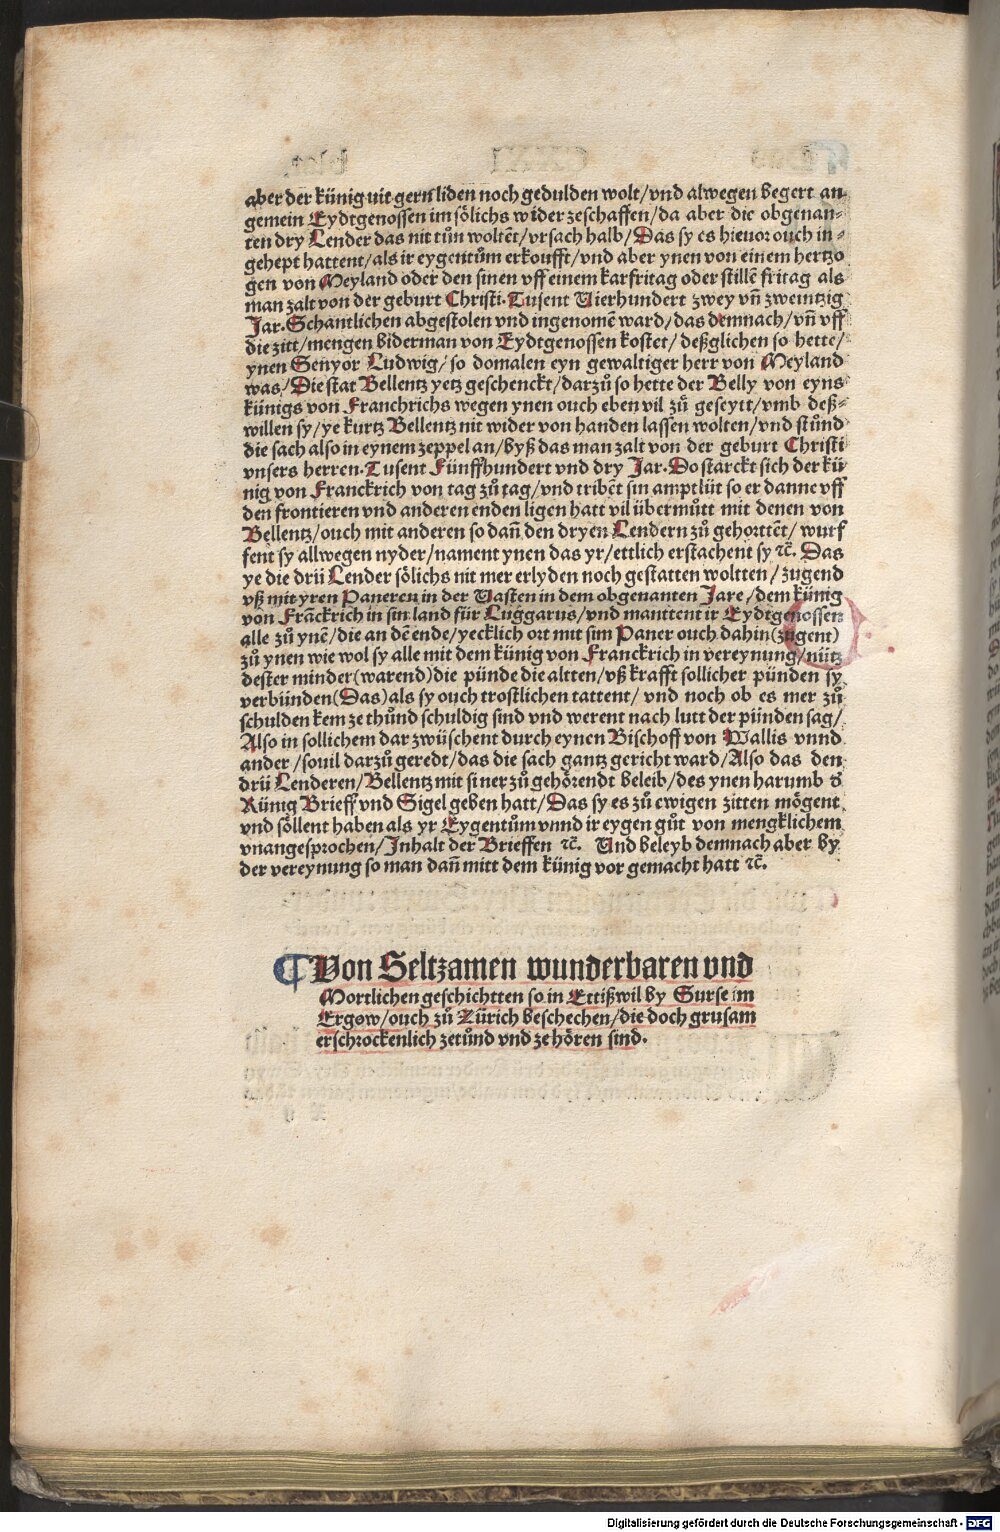 aber der künig nit gern liden noch gedulden wolt/ vnd alwegen begert an
gemein Eydtgenossen im sölichs wider zeschaffen/ da aber die obgenan⸗
ten dry Lender das nit tůn woltẽt/ vrsach halb/ Das sy es hieuor ouch in⸗
gehept hattent/ als ir eygentům erkoufft/ vnd aber ynen von einem hertzo
gen von Meyland oder den sinen vff einem karfritag oder stillẽ fritag als
man zalt von der geburt Christi. Tusent Vierhundert zwey vñ zweintzig
Jar. Schantlichen abgestolen vnd ingenomẽ ward/ das demnach/ vñ vff
die zitt/ mengen biderman von Eydtgenossen kostet/ deßglichen so hette/
ynen Senyor Ludwig/ so domalen eyn gewaltiger herr von Meyland
was/ Die stat Bellentz yetz geschenckt/ darzů so hette der Belly von eyns
künigs von Franchrichs wegen ynen ouch eben vil zů geseytt/ vmb deß⸗
willen sy/ ye kurtz Bellentz nit wider von handen lassen wolten/ vnd stůnd
die sach also in eynem zeppel an/ byß das man zalt von der geburt Christi
vnsers herren. Tusent Fünffhundert vnd dry Jar. Do starckt sich der kü
nig von Franckrich von tag zů tag/ vnd tribẽt sin amptlüt so er danne vff
den frontieren vnd anderen enden ligen hatt vil übermůtt mit denen von
Bellentz/ ouch mit anderen so dañ den dryen Lendern zů gehorttẽt/ wurf
fent sy allwegen nyder/ nament ynen das yr/ ettlich erstachent sy ꝛc̃. Das
ye die drü Lender sölichs nit mer erlyden noch gestatten woltten/ zugend
vß mit yren Paneren in der Vasten in dem obgenanten Jare/ dem künig
von Frãckrich in sin land für Luggarus/ vnd manttent ir Eydtgenossen
alle zů ynẽ/ die an dẽ ende/ yecklich ort mit sim Paner ouch dahin (zugent)
zů ynen wie wol sy alle mit dem künig von Franckrich in vereynung/ nütz
dester minder (warend) die pünde die altten/ vß krafft sollicher pünden sy
verbünden (Das) als sy ouch trostlichen tattent/ vnd noch ob es mer zů
schulden kem ze thůnd schuldig sind vnd werent nach lutt der pünden sag/
Also in sollichem dar zwüschent durch eynen Bischoff von Wallis vnnd
ander/ souil darzů geredt/ das die sach gantz gericht ward/ Also das den
drü Lenderen/ Bellentz mit siner zů gehörendt beleib/ des ynen harumb d̕
Künig Brieff vnd Sigel geben hatt/ Das sy es zů ewigen zitten mögent
vnd söllent haben als yr Eygentům vnnd ir eygen gůt von mengklichem
vnangesprochen/ Inhalt der Brieffen ꝛc̃. Vnd beleyb demnach aber by
der vereynung so man dañ mitt dem künig vor gemacht hatt ꝛc̃.
¶ Von Seltzamen wunderbaren vnd
Mortlichen geschichtten so in Ettißwil by Surse im
Ergow/ ouch zů Zürich beschechen/ die doch grusam
erschrockenlich zetůnd vnd ze hören sind.
Digitalisierung gefördert durch die Deutsche Forschungsgemeinschaft - DFG